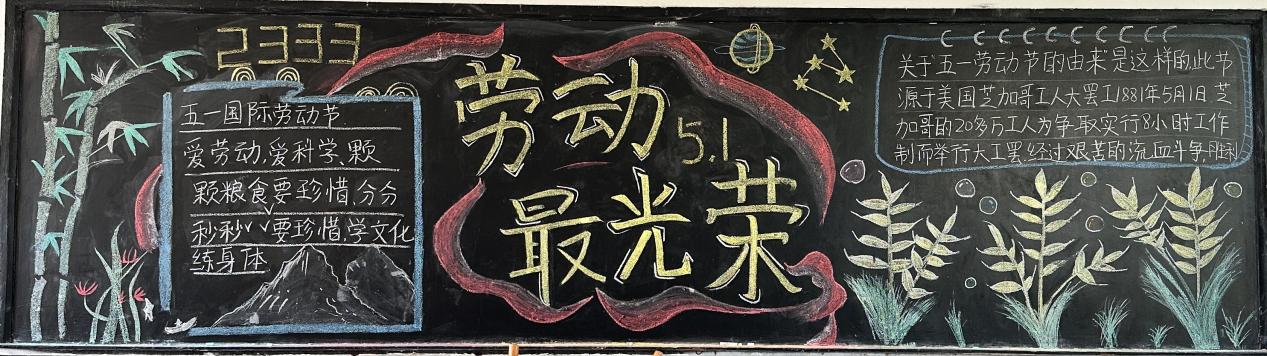 2333
五一国际劳动节
爱劳动,爱科学,颗
颗粮食要珍惜,分分
秒秒、、要珍惜,学文化
练身体
劳动
5.1
最光荣
关于五一劳动节的由来是这样的此节
源于美国芝加哥工人大罢工1881年5月1日芝
加哥的20多万工人为争取实行8小时工作
制而举行大工罢.经过艰苦的流血斗争,胜利